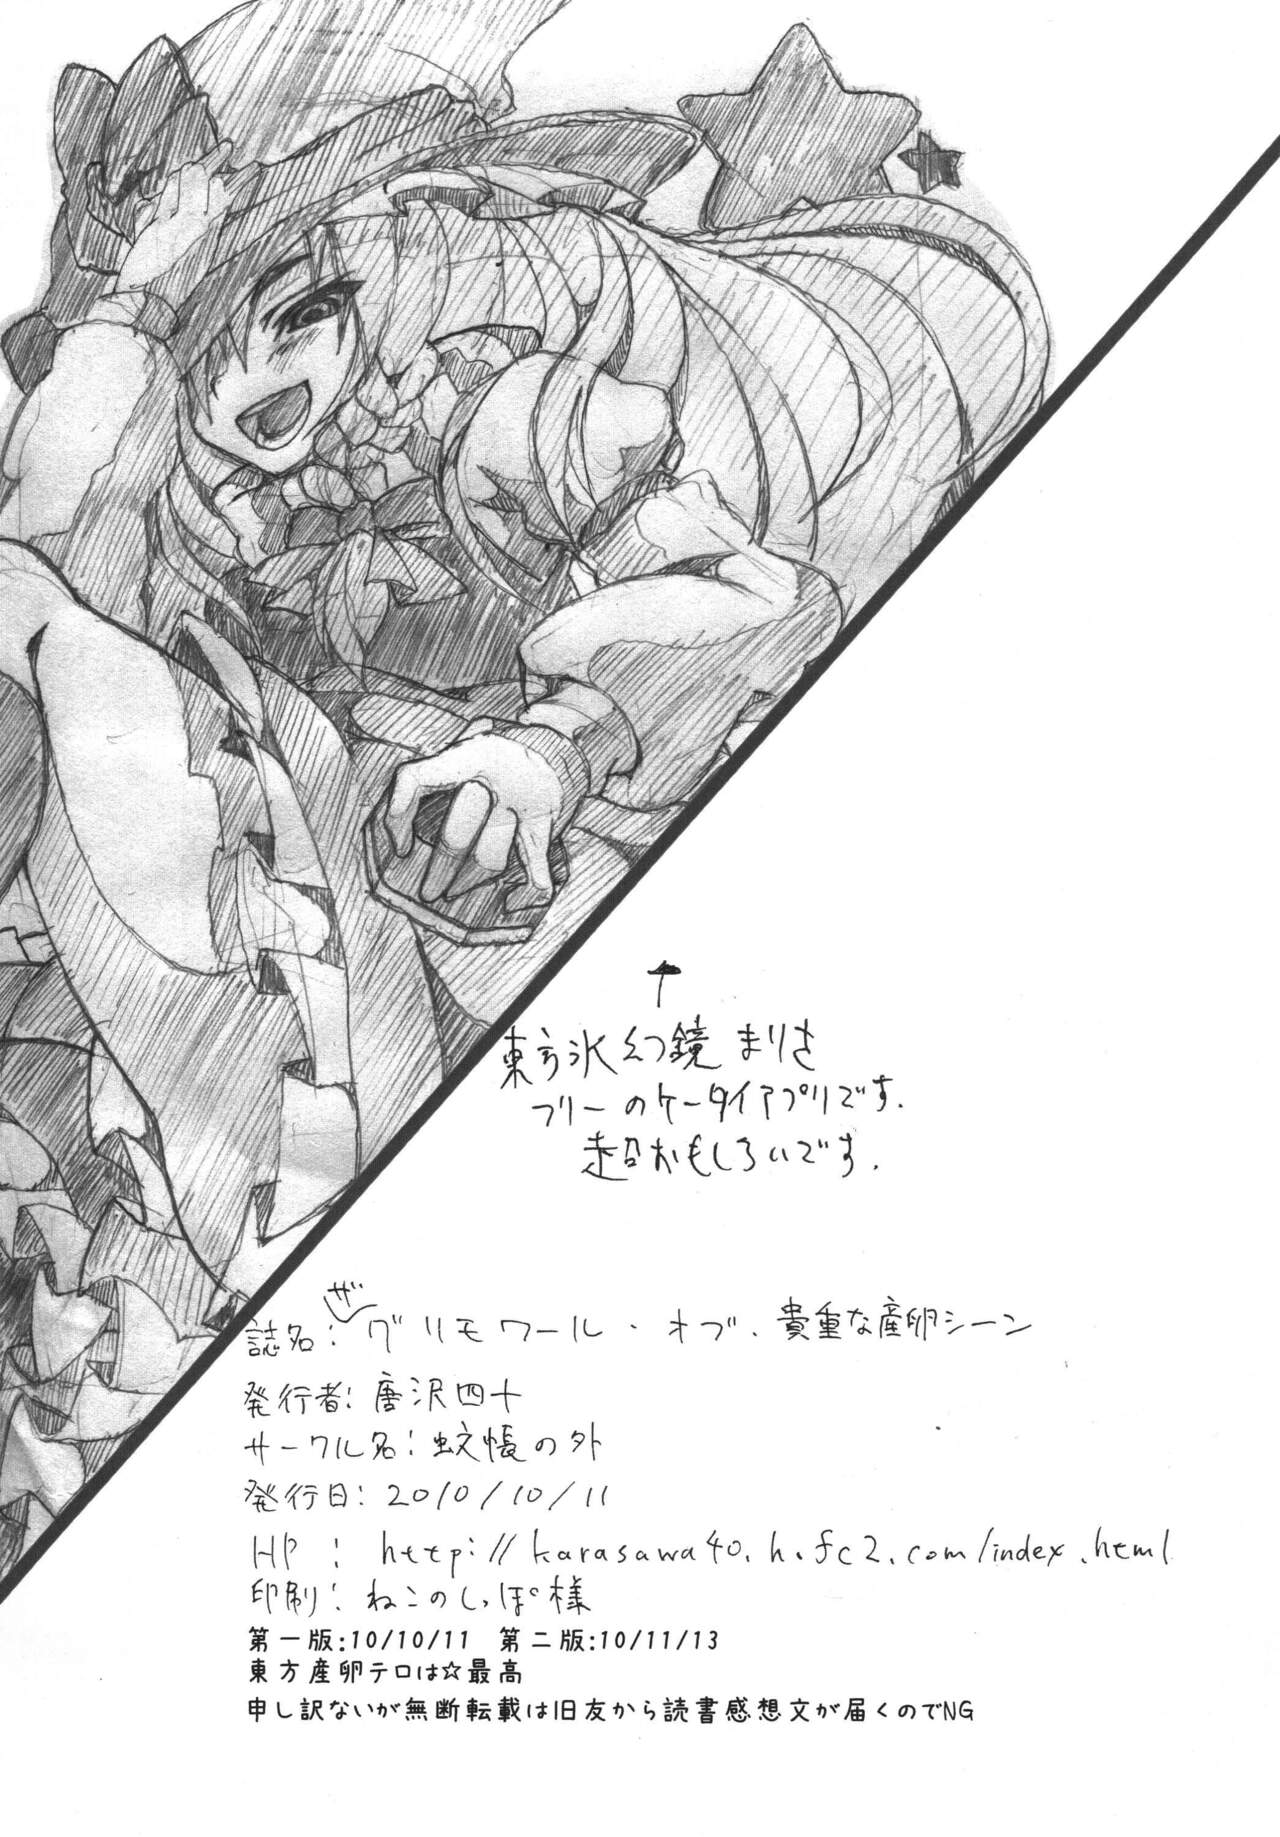 ↑
東方氷幻鏡 まりさ
フリーのケータイアプリです.
超おもしろいです.
ザ
誌名: グリモワール・オブ・貴重な産卵シーン
発行者: 唐沢四十
サークル名: 蚊帳の外
発行日: 2010/10/11
HP : http://karasawa40.h.fc2.com/index.html
印刷: ねこのしっぽ様
第一版:10/10/11 第二版:10/11/13
東方産卵テロは☆最高
申し訳ないが無断転載は旧友から読書感想文が届くのでNG